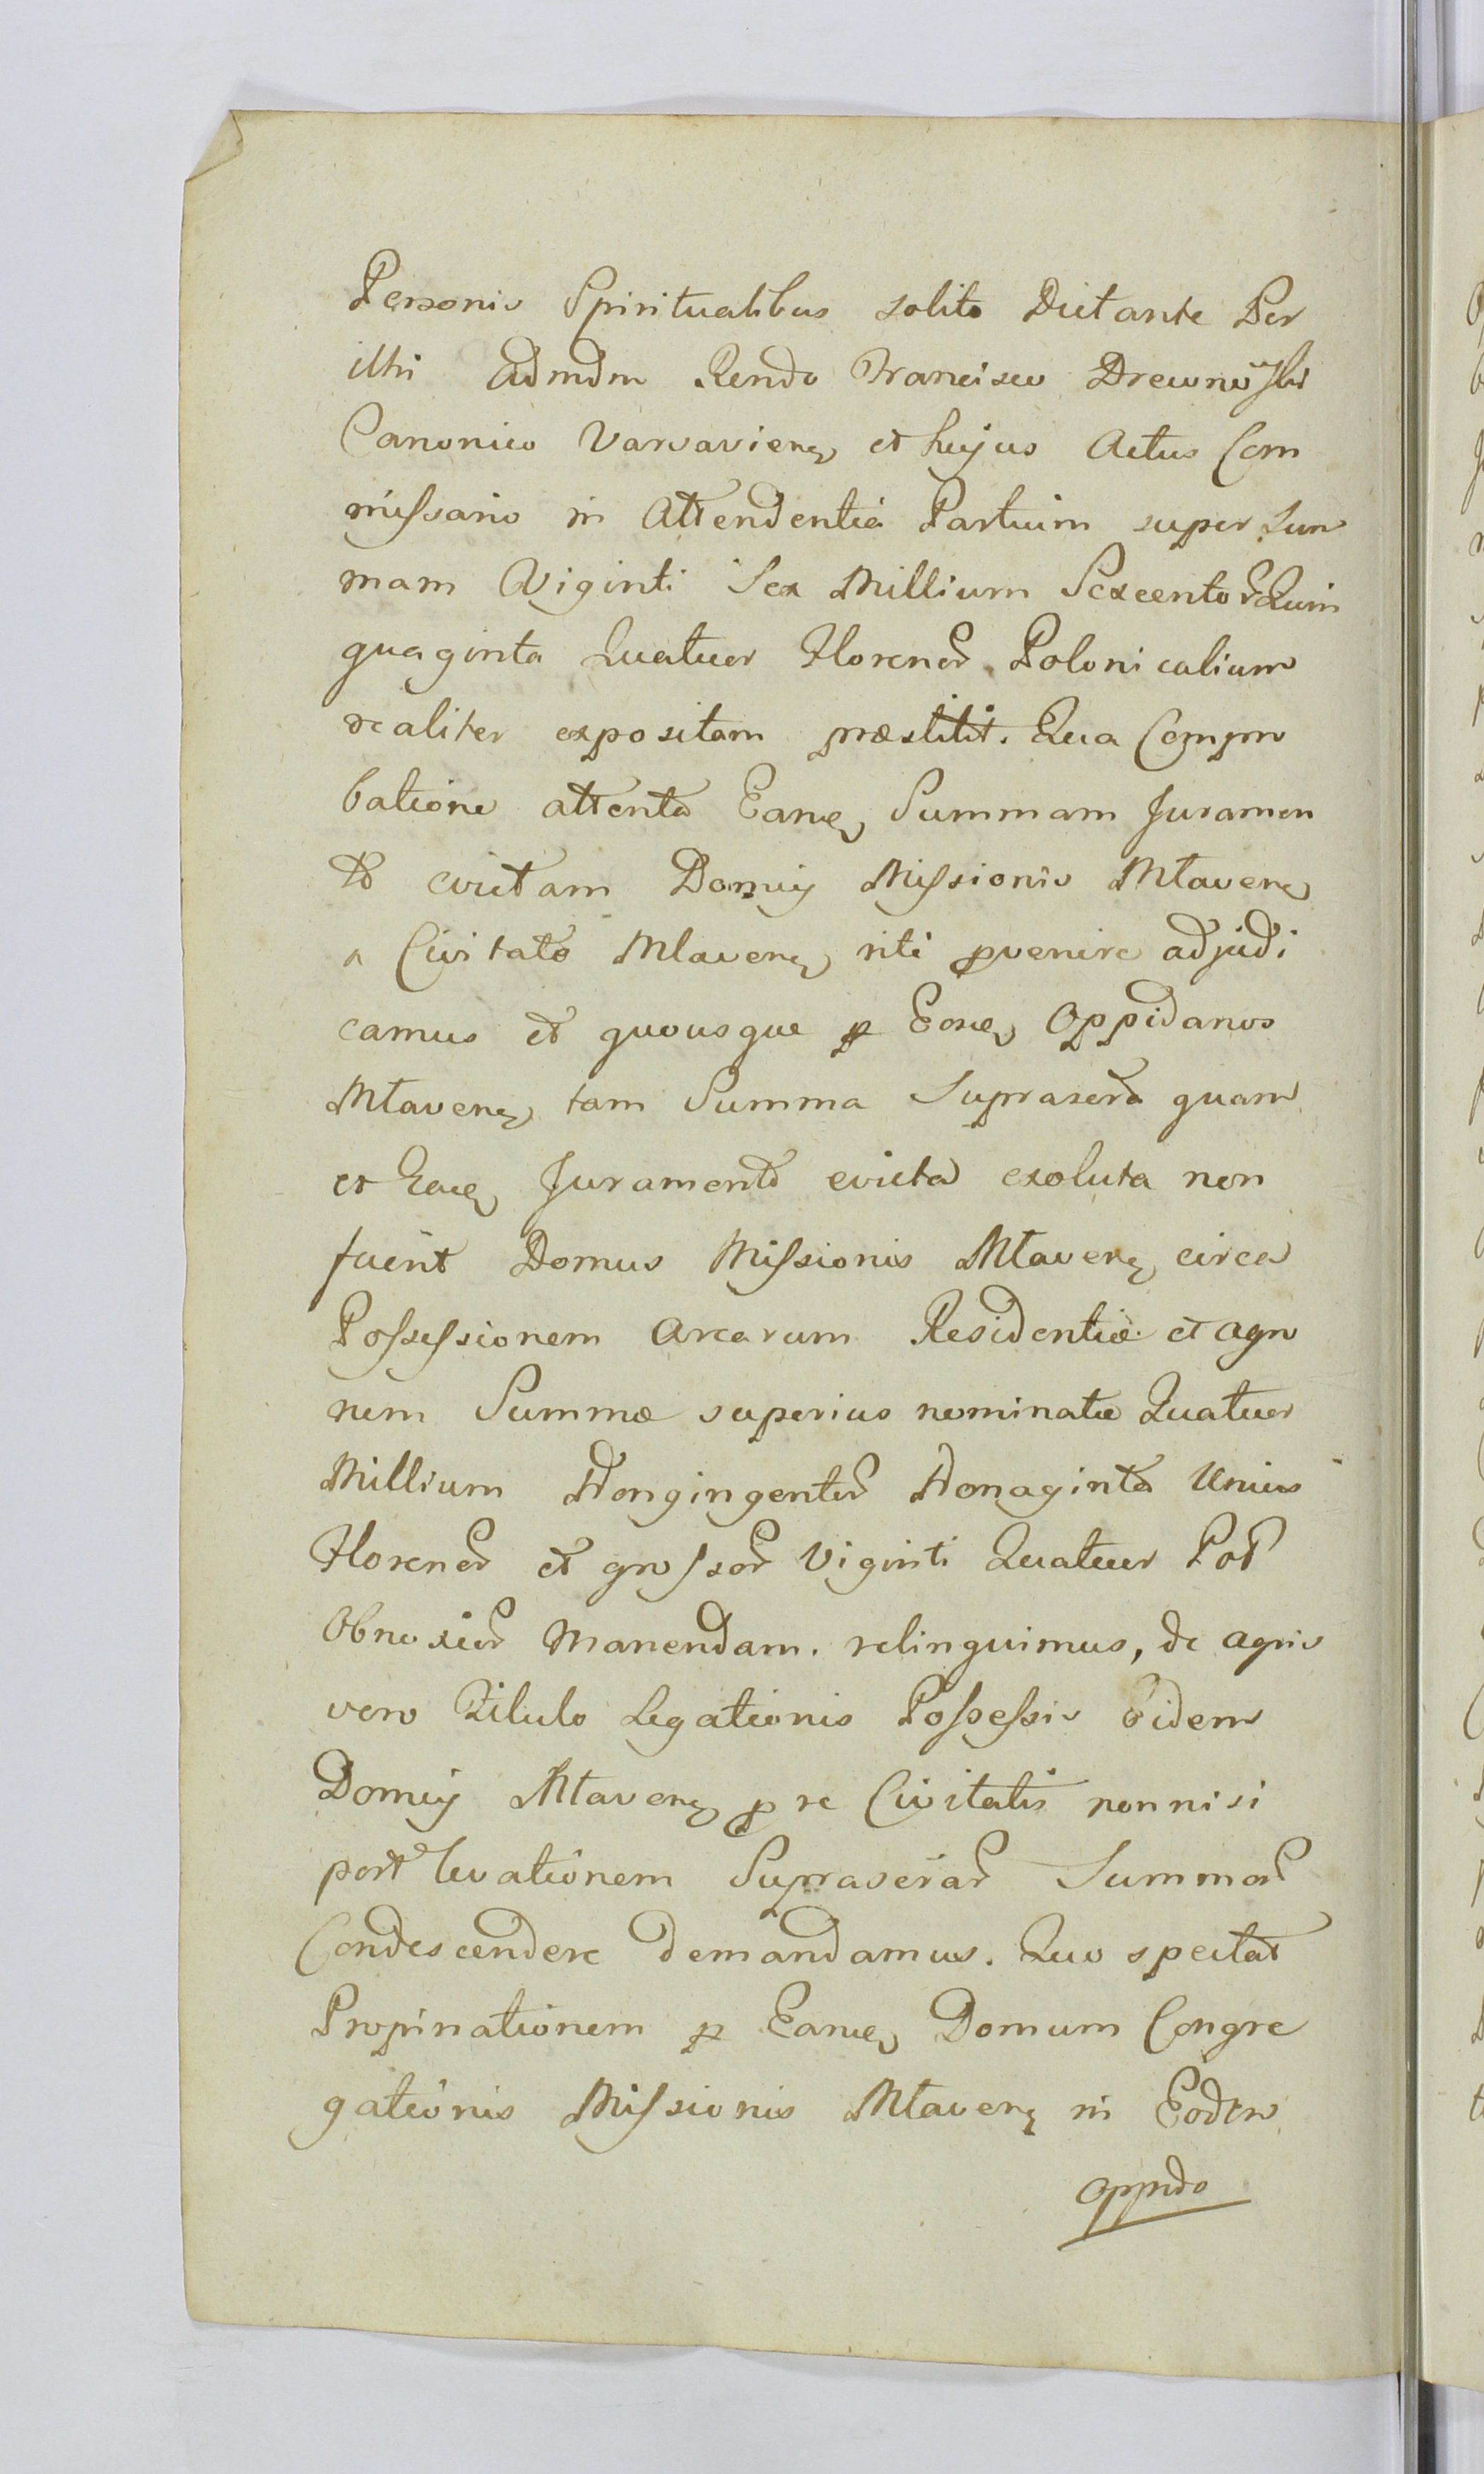 Personis Spiritualibus solito Dictante Per
illri Admdm Rendo Francisco Drewnoski
Canonico Varsavienȩ et hujus Actus Com
missario in Attendentia Partium super Sum
mam Viginti Sex Millium Sexcentor Quin
quaginta Quatuor Florenor Polonicalium
realiter expositam præstitit. Qua Compro
batione attenta Eamȩ Summam Juramen
to evictam Domui Missionis Mlavenȩ
a Civitate Mlavenȩ riti pvenire adjudi
camus et quousque p Eosȩ Oppidanos
Mlavenȩ tam Summa Suprascra quam
et Eaȩ Juramento evicta exoluta non
fuerit Domus Missionis Mlavenȩ circa
Possessionem Arearum Residentiæ et agro
rum Summæ superius nominatæ Quatuor
Millium Nongingentor Nonaginta Unius
Florenor et grossor Viginti Quatuor Pol
Obnoxior Manendam. relinquimus, de agris
vero Titulo Legationis Possessis eidem
Domui Mlavenȩ p re Civitatis nonnisi
post levationem Suprascrar Summar
Condescendere demandamus. Quo spectat
Propinationem p Eamȩ Domum Congre
gationis Missionis Mlavenȩ in Eodem
Oppido